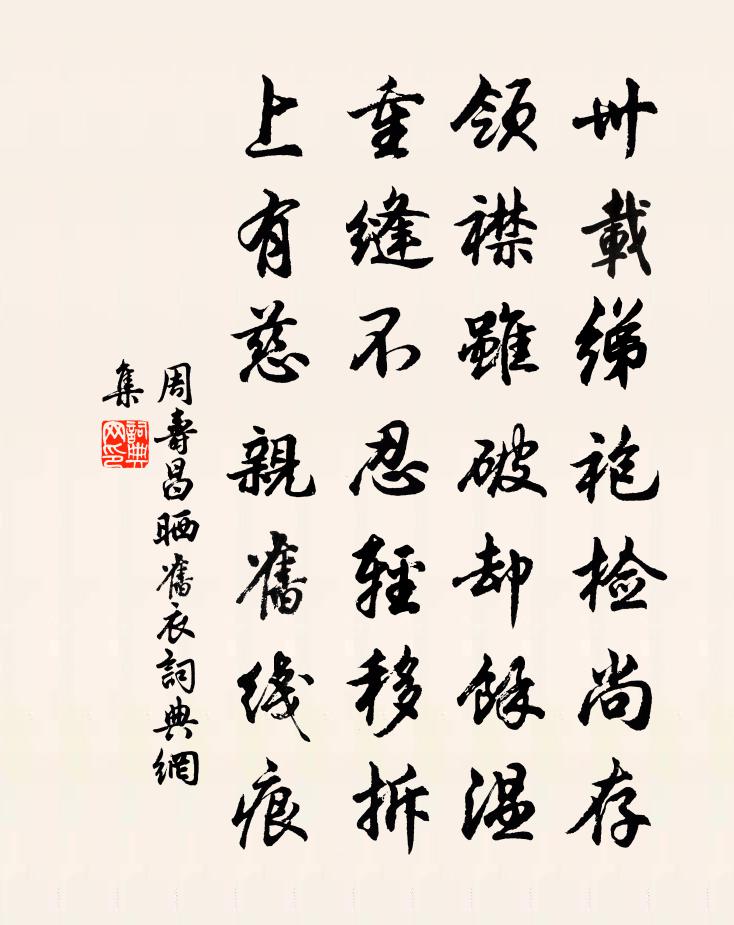 卅載綈袍检尚存
領襟雖破却餘温
重縫不忍輕移拆
上有慈親舊线痕
周壽昌晒舊衣詞典網
集
詞典
网印